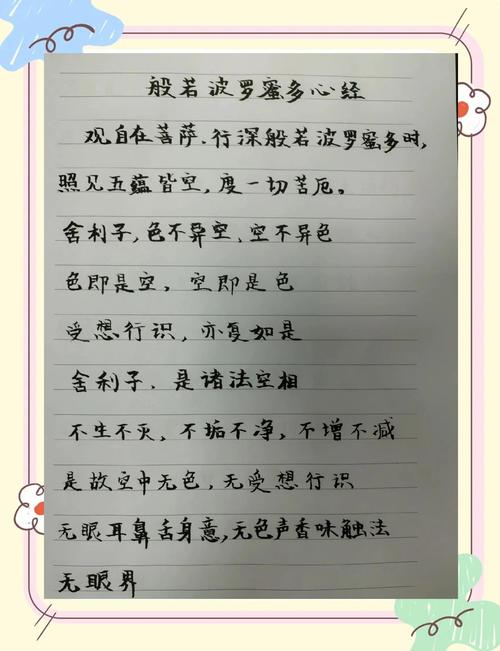 般若波罗蜜多心经
观自在菩萨.行深般若波罗蜜多时,
照见五蕴皆空,度一切苦厄。
舍利子,色不异空、空不异色
色即是空,空即是色
受想行识,亦复如是
舍利子.是诸法空相
不生不灭,不垢不净,不增不减
是故空中无色,无受想行识
无眼耳鼻舌身意,无色声香味触法
无眼界